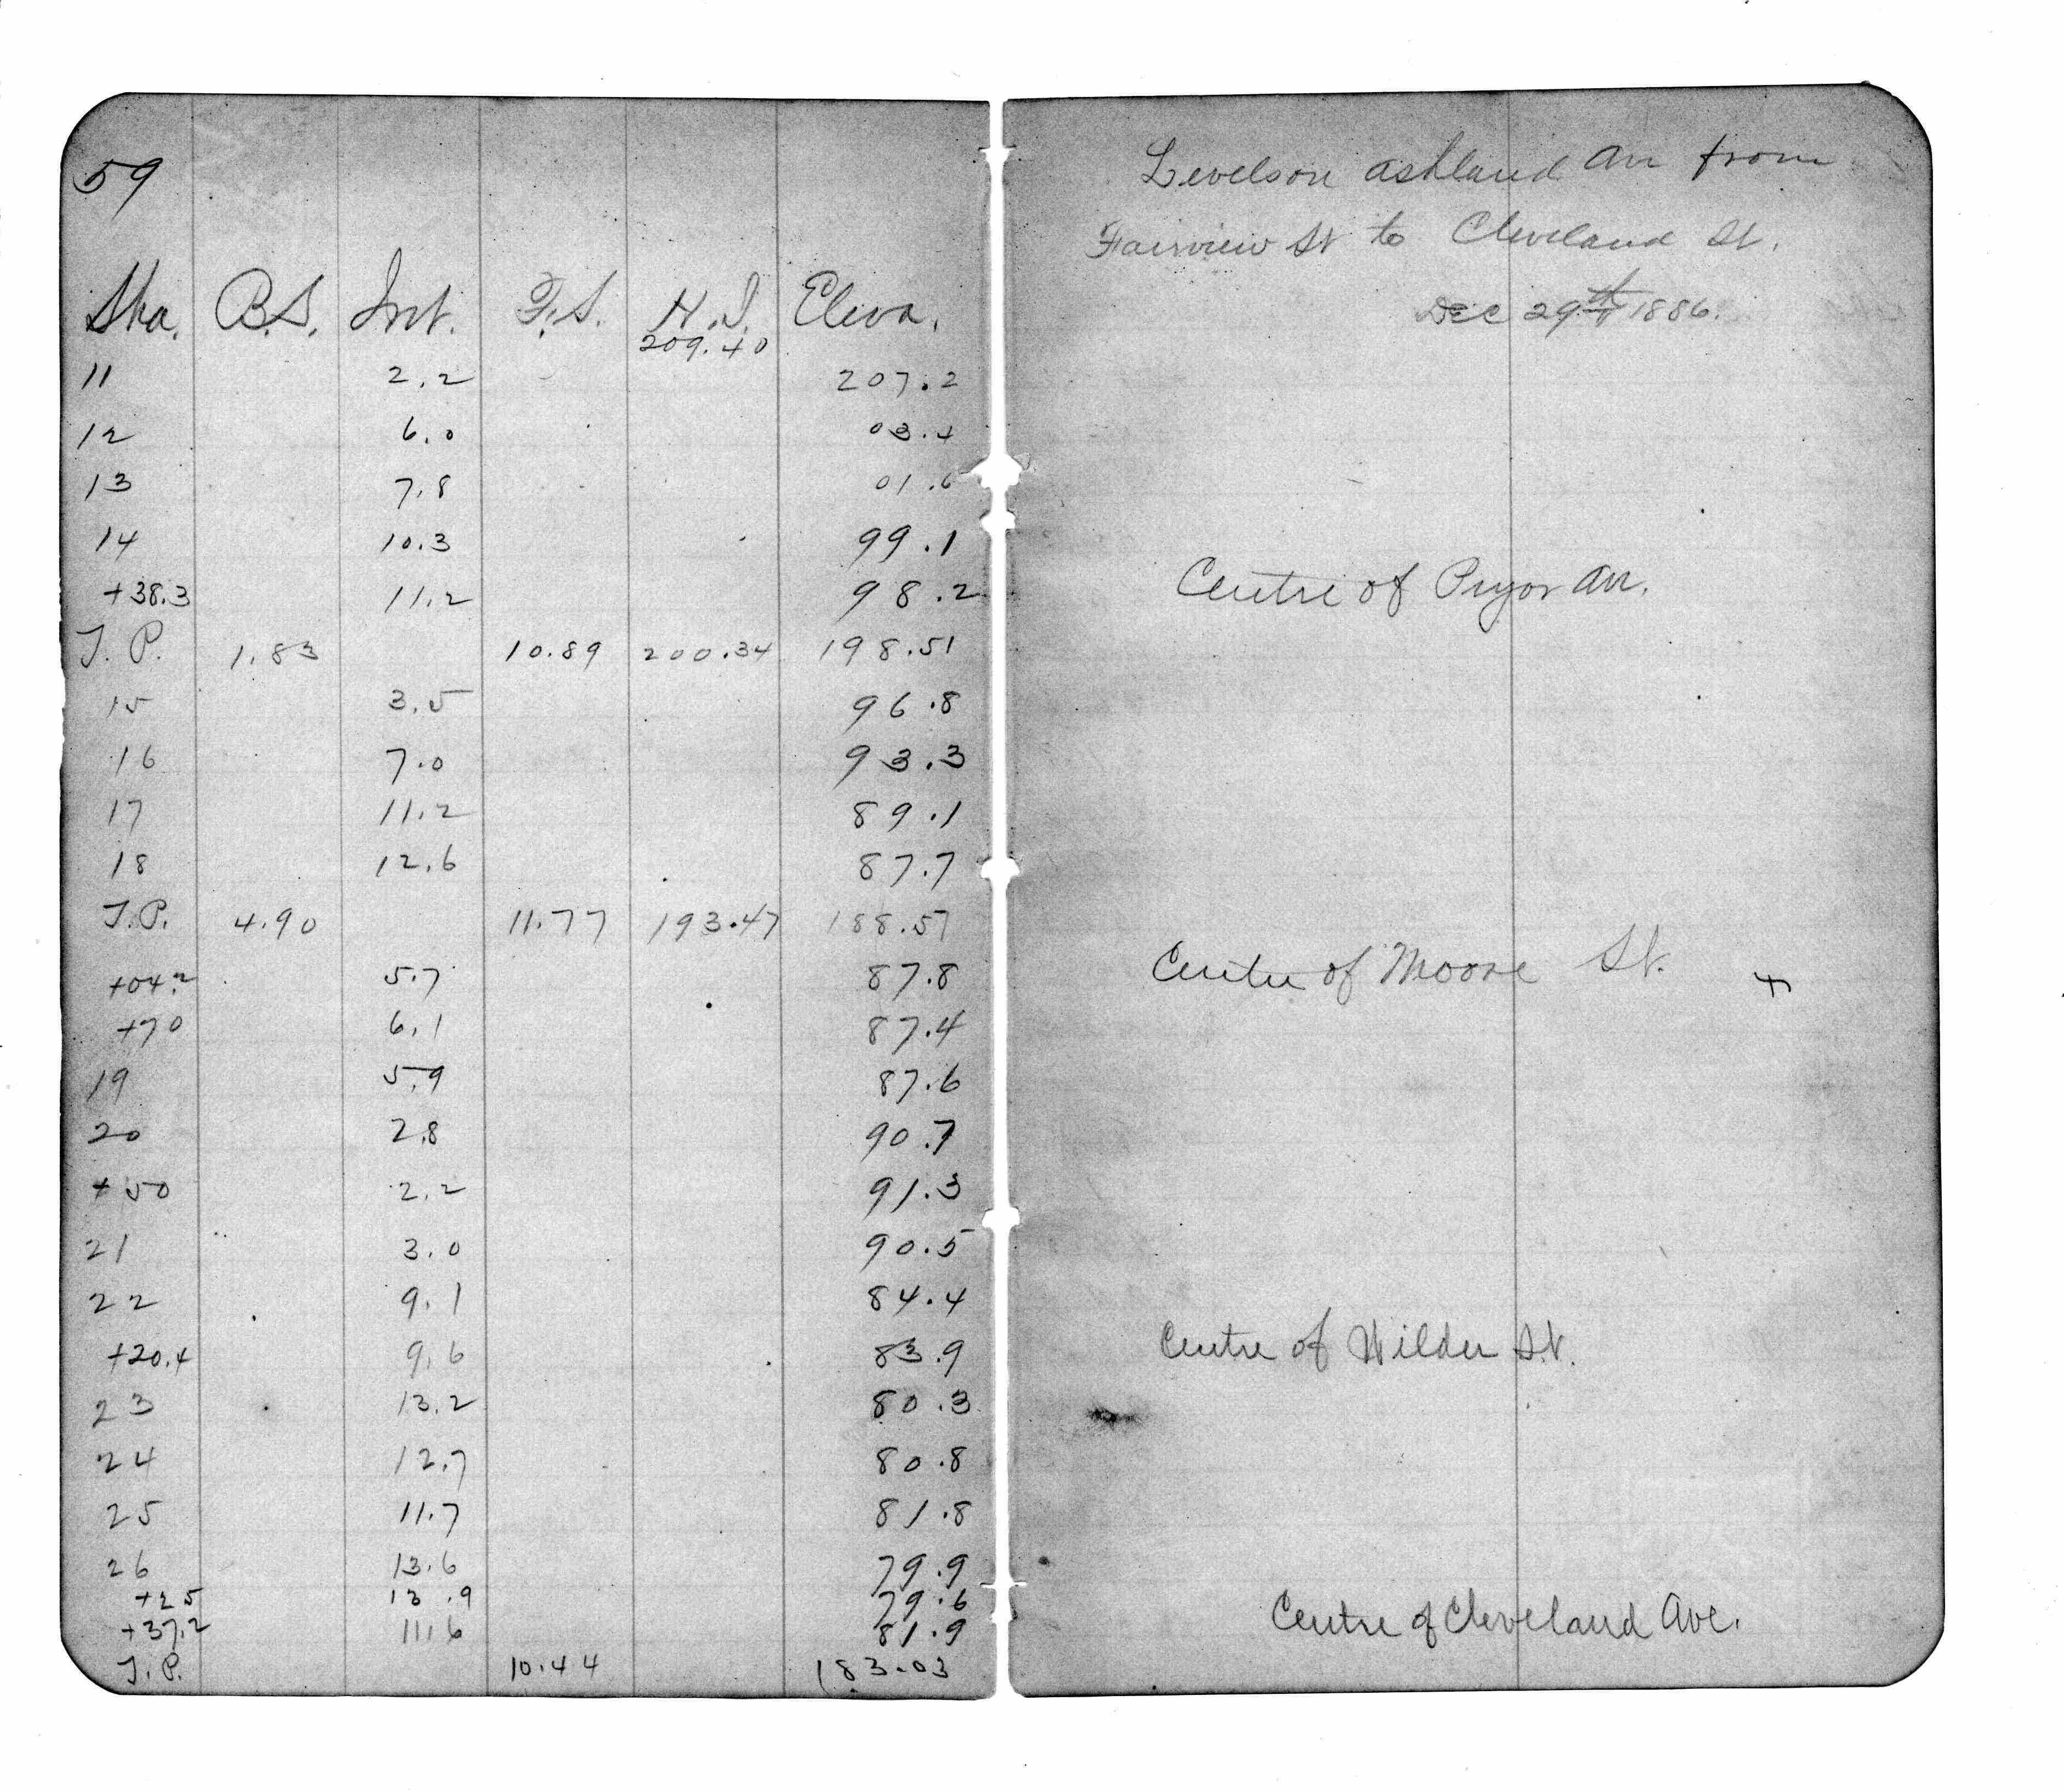 59
Sta. B.S. Int. F.S. H.I. Eleva.
209.40
11 2.2 207.2
12 6.0 03.4
13 7.8 01.6
14 10.3 99.1
+38.3 11.2 98.2
T.P. 1.83 10.89 200.34 198.51
15 3.5 96.8
16 7.0 93.3
17 11.2 89.1
18 12.6 87.7
T.P. 4.90 11.77 193.47 188.57
+04.2 5.7 87.8
+70 6.1 87.4
19 5.9 87.6
20 2.8 90.7
+50 2.2 91.3
21 3.0 90.5
22 9.1 84.4
+20.4 9.6 83.9
23 13.2 80.3
24 12.7 80.8
25 11.7 81.8
26 13.6 79.9
+25 13.9 79.6
+37.2 11.6 81.9
T.P. 10.44 183.03
Levels on Ashland Av from
Fairview St to Cleveland St.
Dec 29th 1886.
Centre of Pryor Av.
Centre of Moore St.
Centre of Wilder St.
Centre of Cleveland Ave.